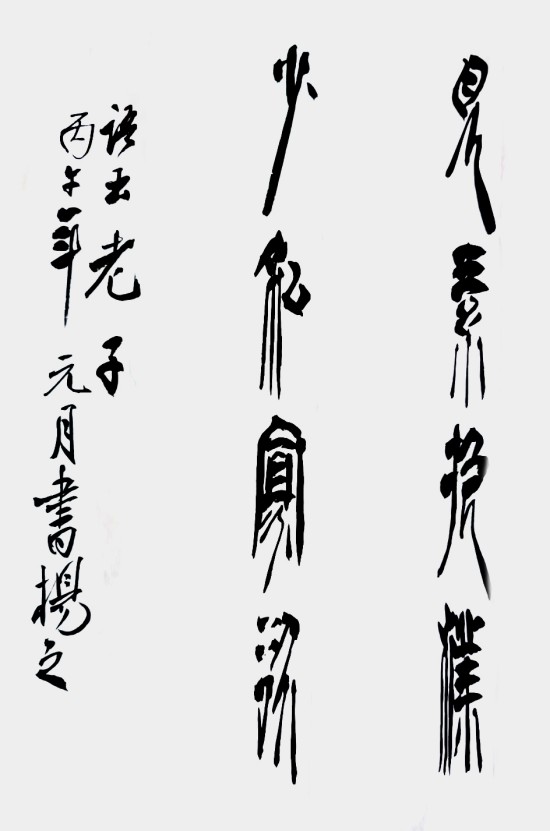 見素抱樸
少私寡欲
語出老子
丙午年元月書楊之